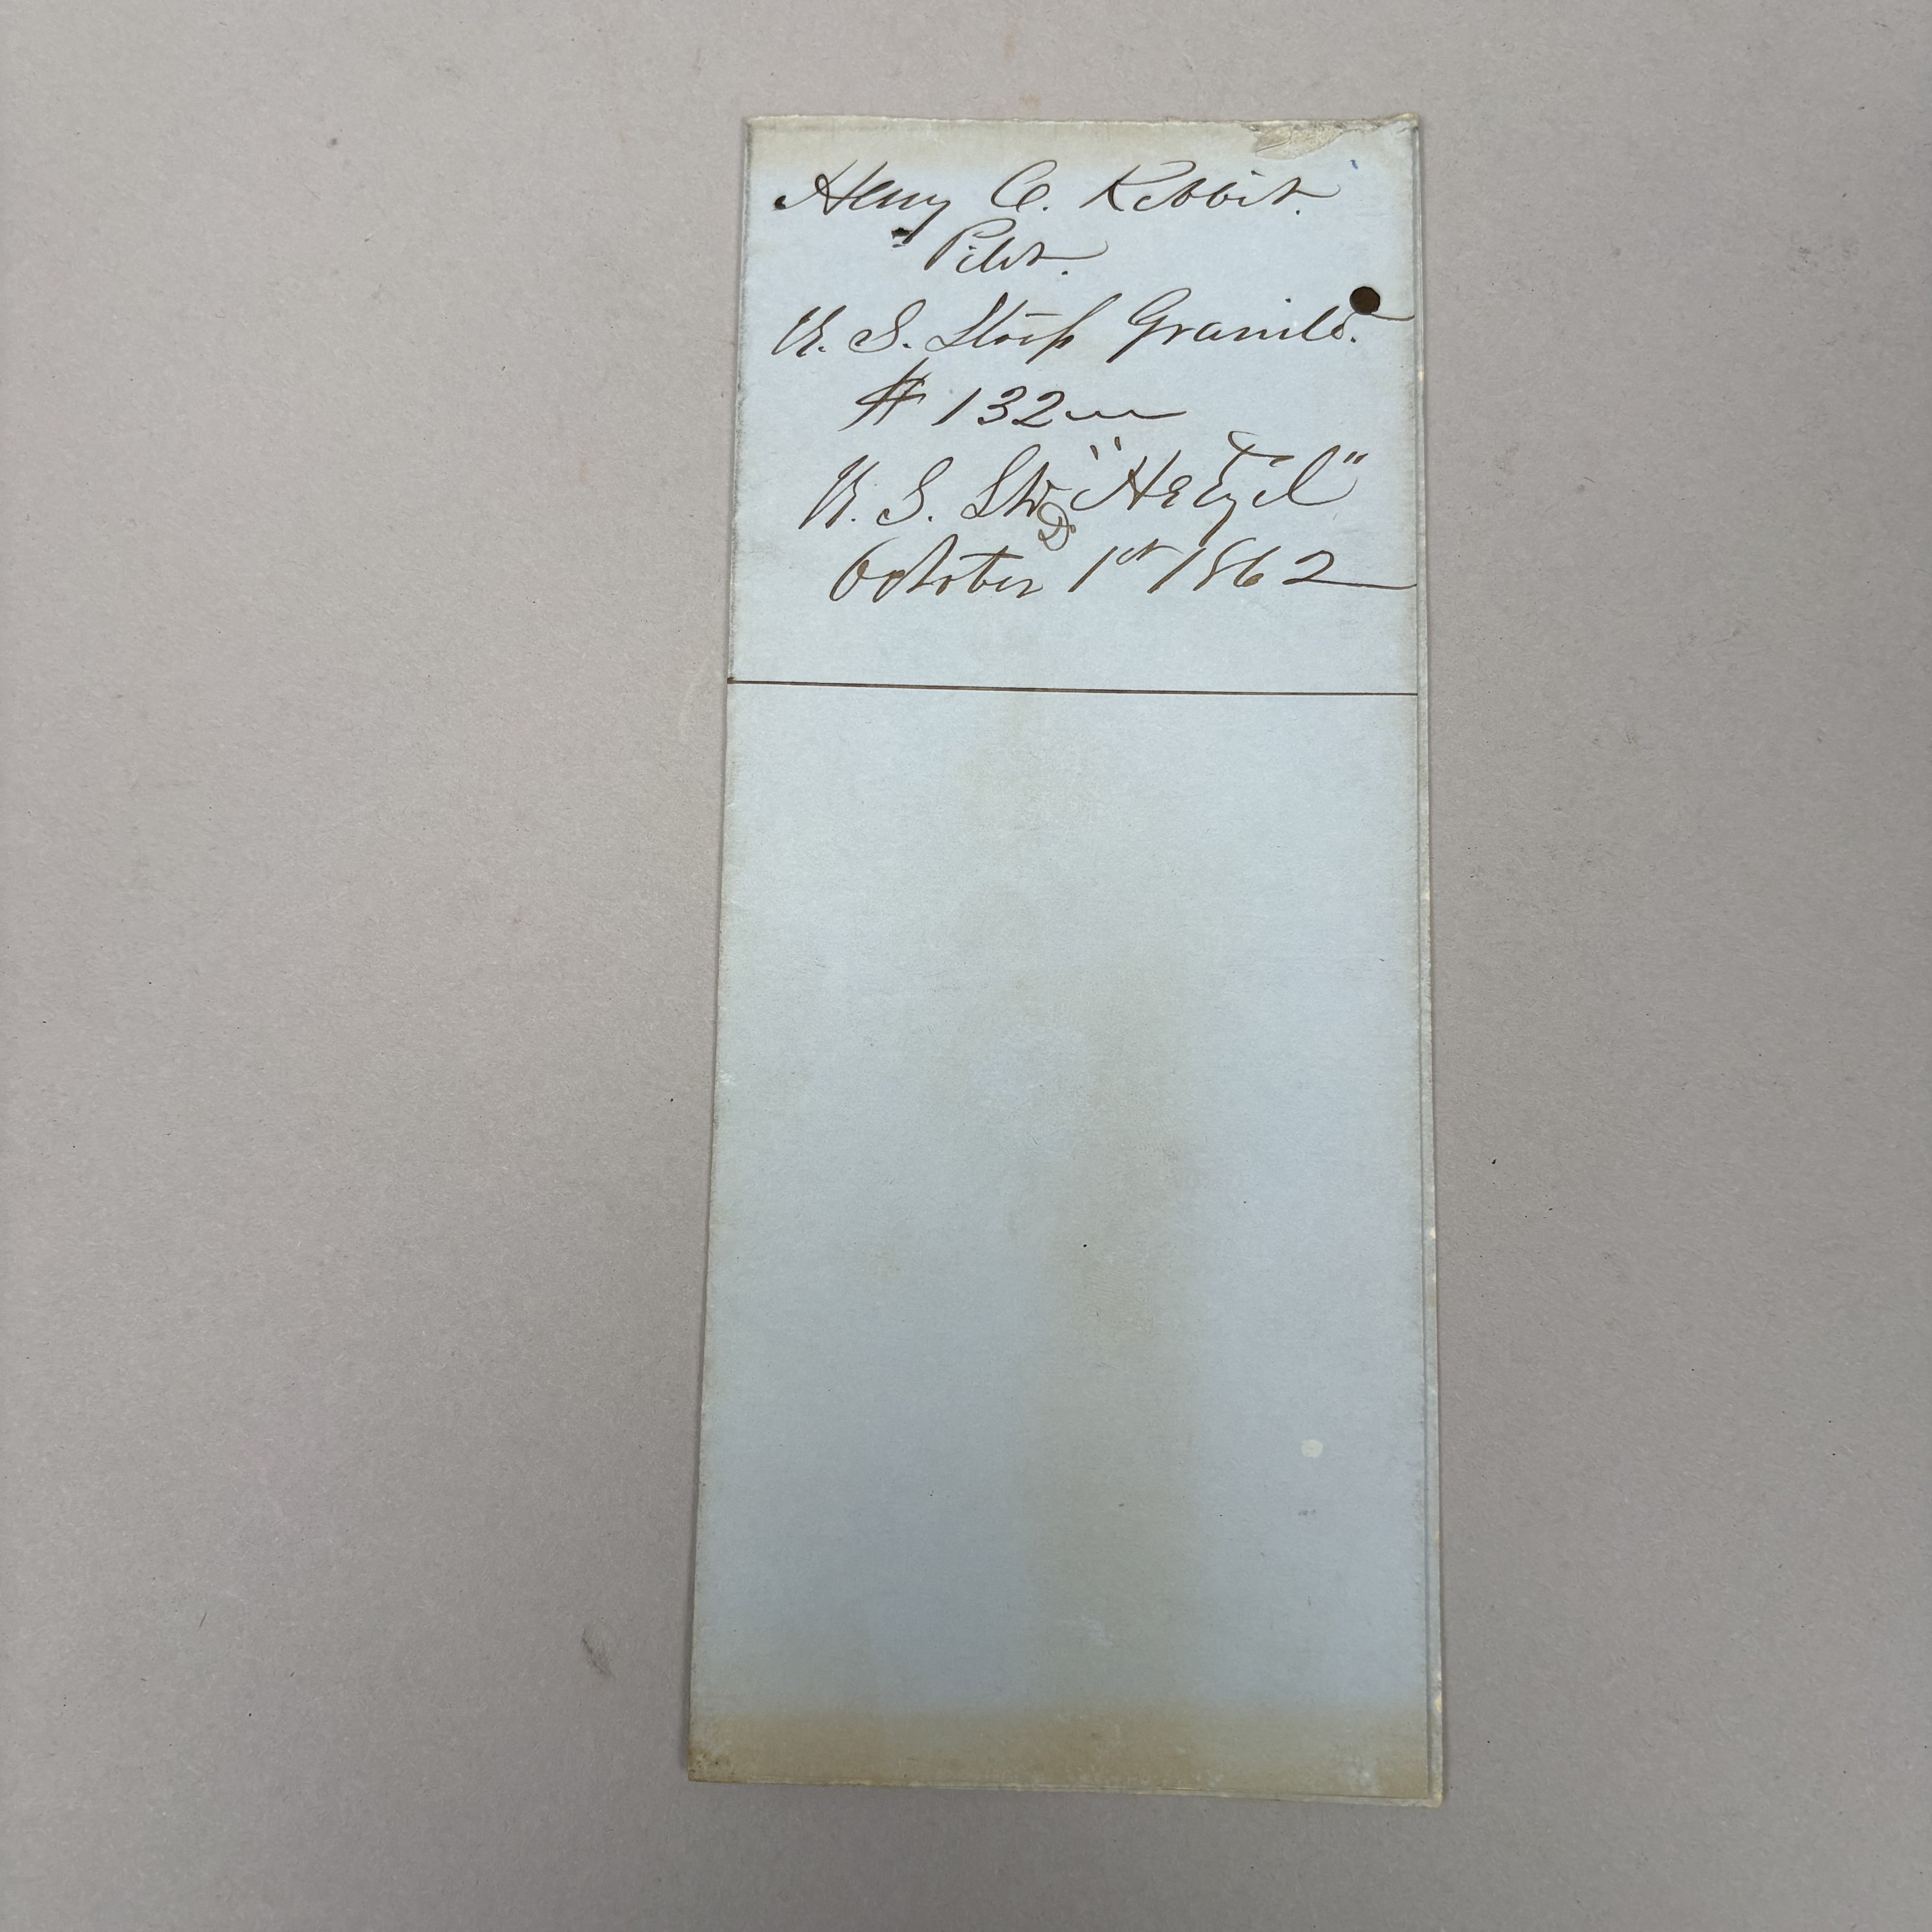 Henry C. Rebbit.
Pilot.
U. S. Sloop Granite.
# 132
U. S. Str "Hetzel"
October 1st 1862